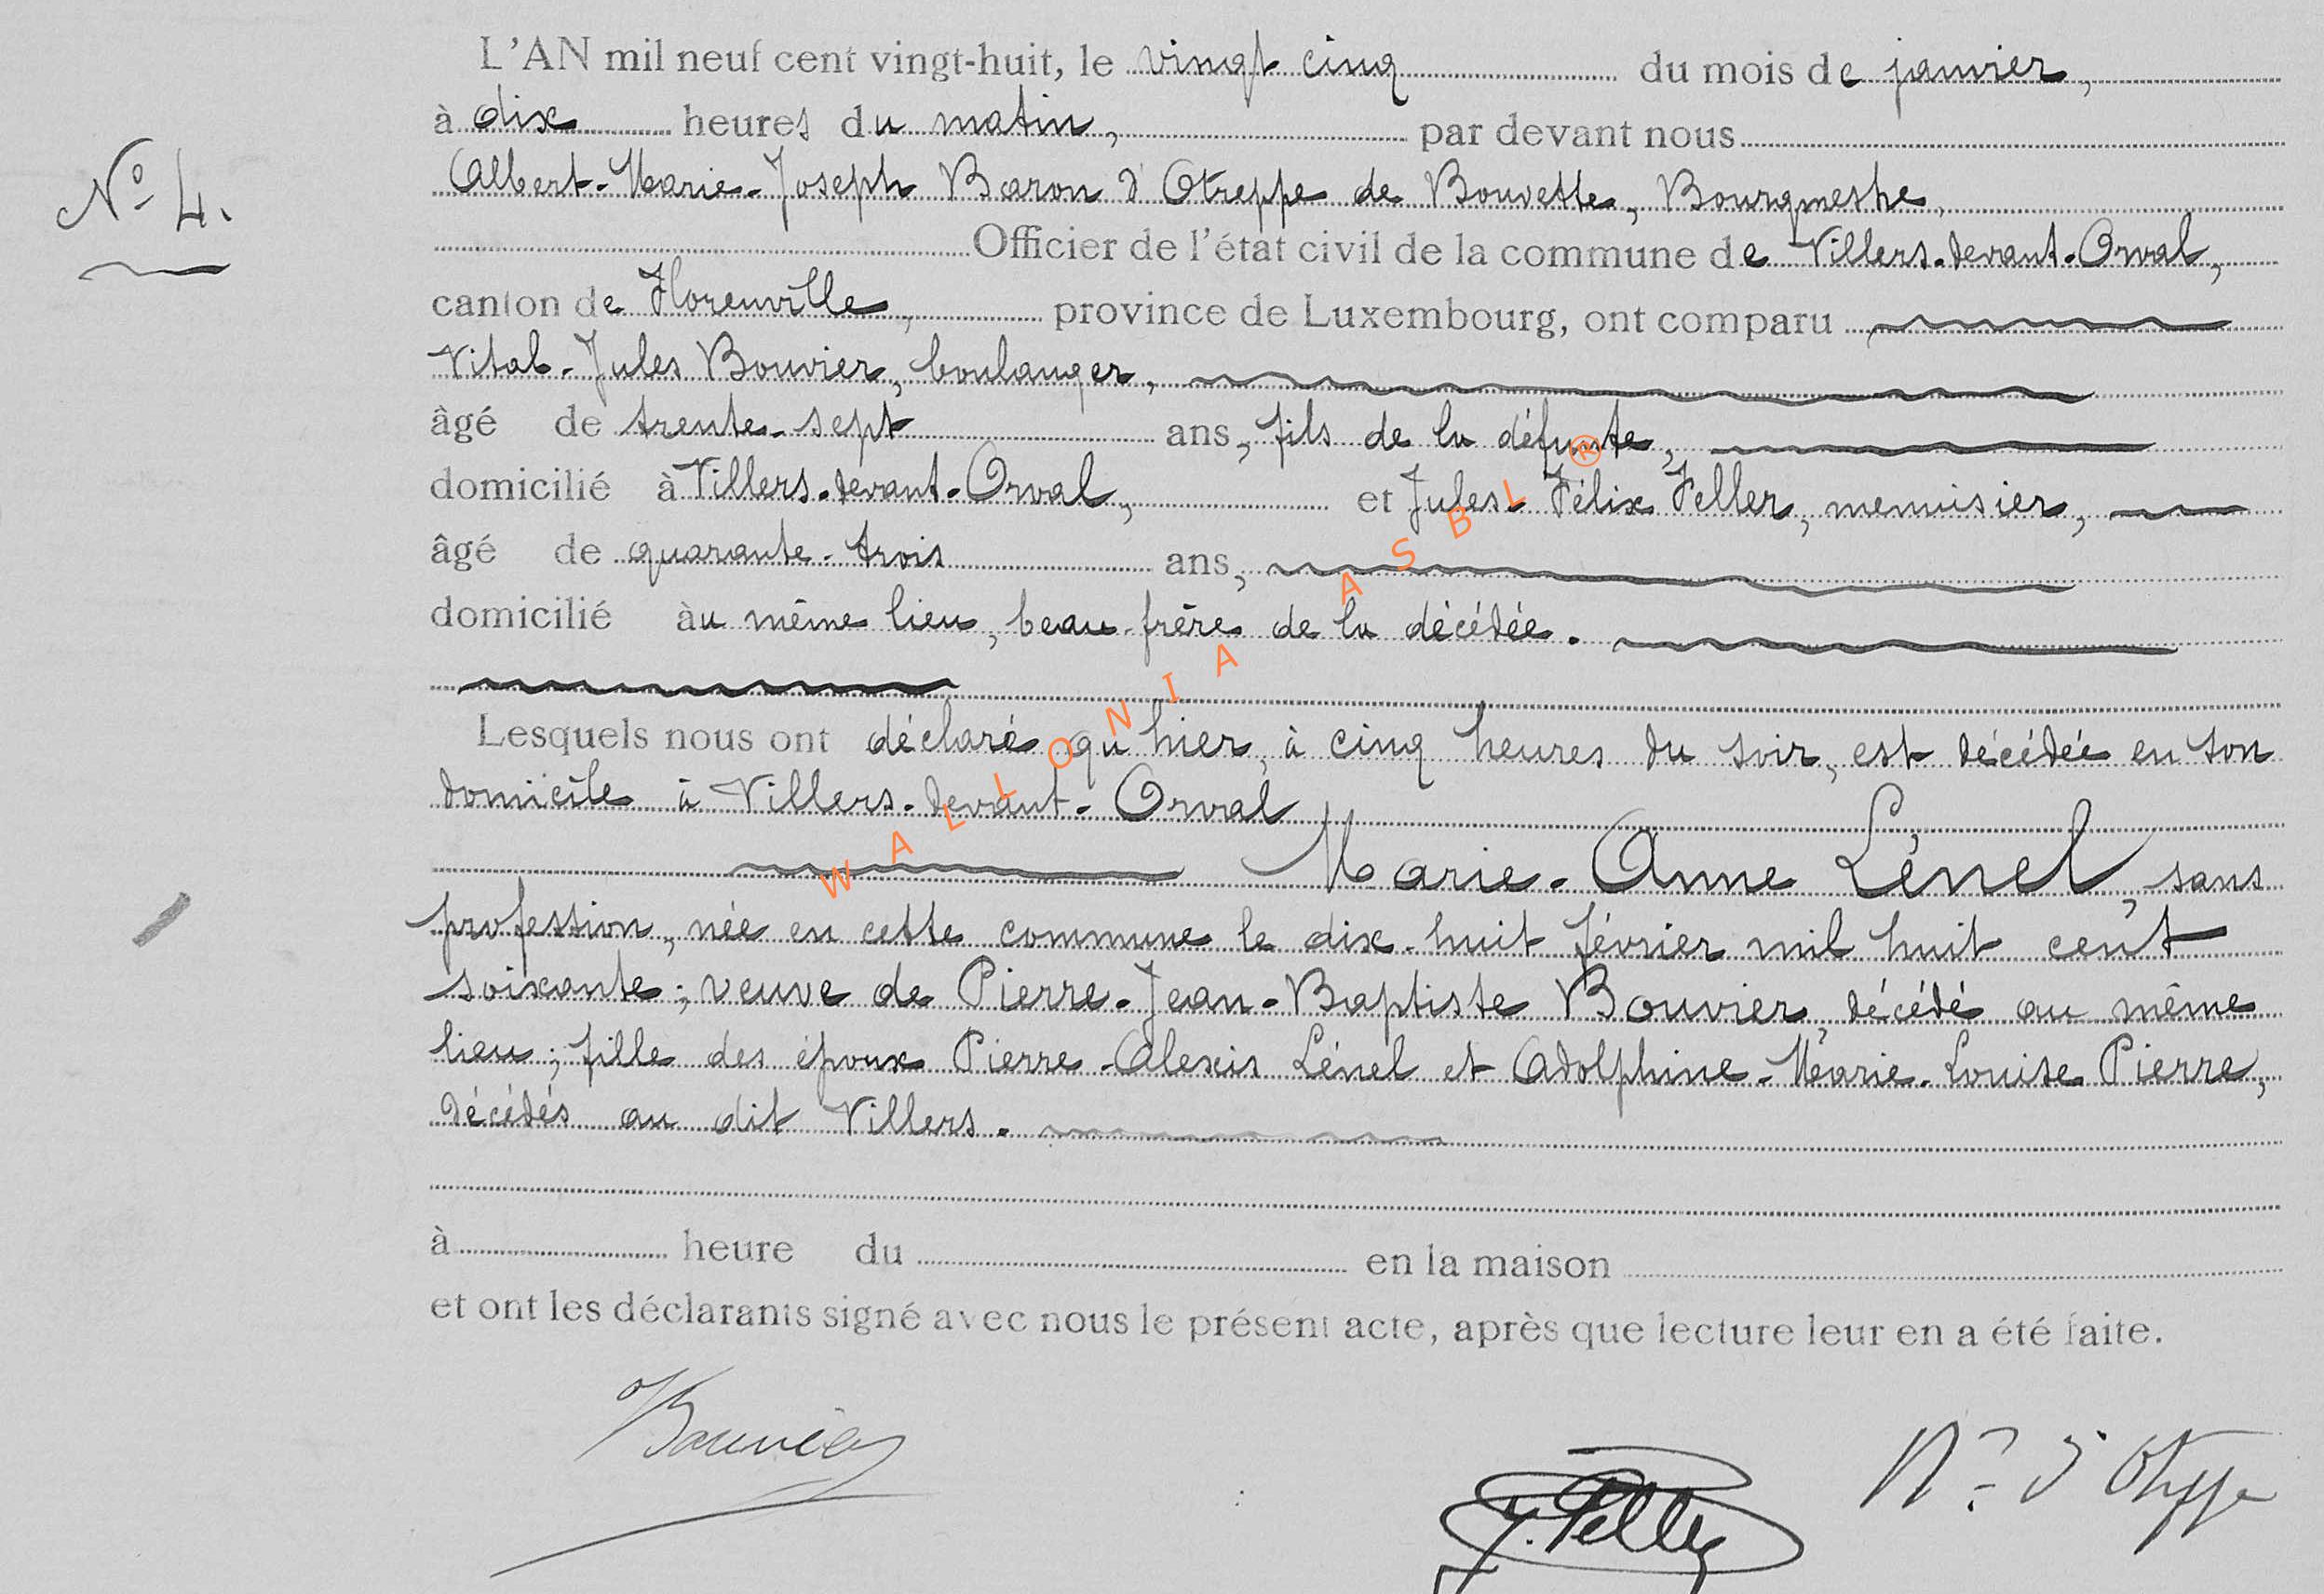 L'AN mil neuf cent vingt-huit, le vingt cinq du mois de janvier,
à dix heures du matin, par devant nous
Albert-Marie-Joseph Baron d'Otreppe de Bouvette, Bourgmestre,
N° 4.
Officier de l'état civil de la commune de Villers-devant-Orval,
canton de Florenville, province de Luxembourg, ont comparu
Vital-Jules Bouvier, boulanger,
âgé de trente-sept ans, fils de la défunte,
domicilié à Villers-devant-Orval, et Jules-Félix Feller, menuisier,
âgé de quarante-trois ans,
domicilié au même lieu, beau-frère de la décédée.
Lesquels nous ont déclaré qu'hier, à cinq heures du soir, est décédée en son
domicile à Villers-devant-Orval
Marie-Anne Lénel, sans
profession, née en cette commune le dix-huit février mil huit cent
soixante; veuve de Pierre-Jean-Baptiste Bouvier, décédé au même
lieu; fille des époux Pierre-Alexis Lénel et Adolphine-Marie-Louise Pierre,
décédés au dit Villers.
à heure du en la maison
et ont les déclarants signé avec nous le présent acte, après que lecture leur en a été faite.
Bouvier
J. Feller
d'Otreppe
WALLONIA ASBL ®